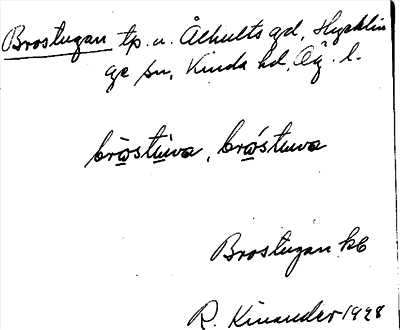 Brostugan tp. u. Åkults gd, Hycklin
ge sn, Kinda hd, Ög. l.
bròstùwa, brástuwa
Brostugan kb
R. Kinander 1928